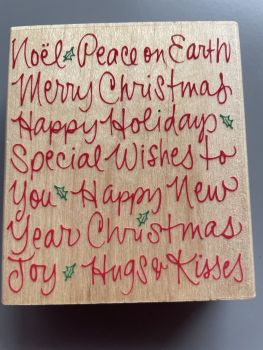 Noël Peace on Earth
Merry Christmas
Happy Holidays
Special Wishes to
You Happy New
Year Christmas
Joy Hugs & Kisses